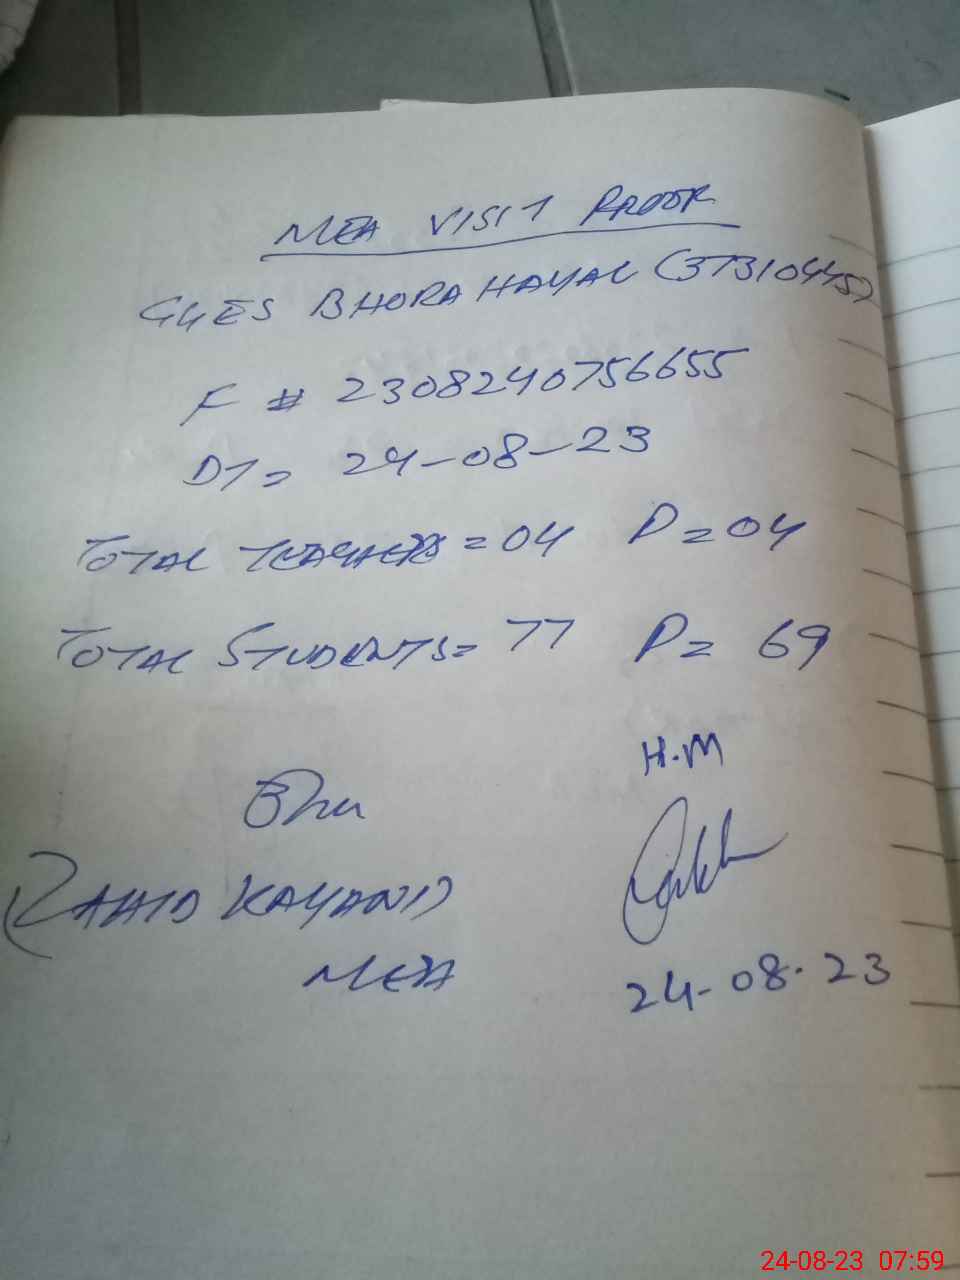 MEA VISIT PROOF
GGES BHORA HAYAL (37310445)
F # 2308240756655
DT = 24-08-23
TOTAL TEACHERS = 04 P = 04
TOTAL STUDENTS = 77 P = 69
H.M
(ZAHID KAYANI)
MEA
24-08-23
24-08-23 07:59